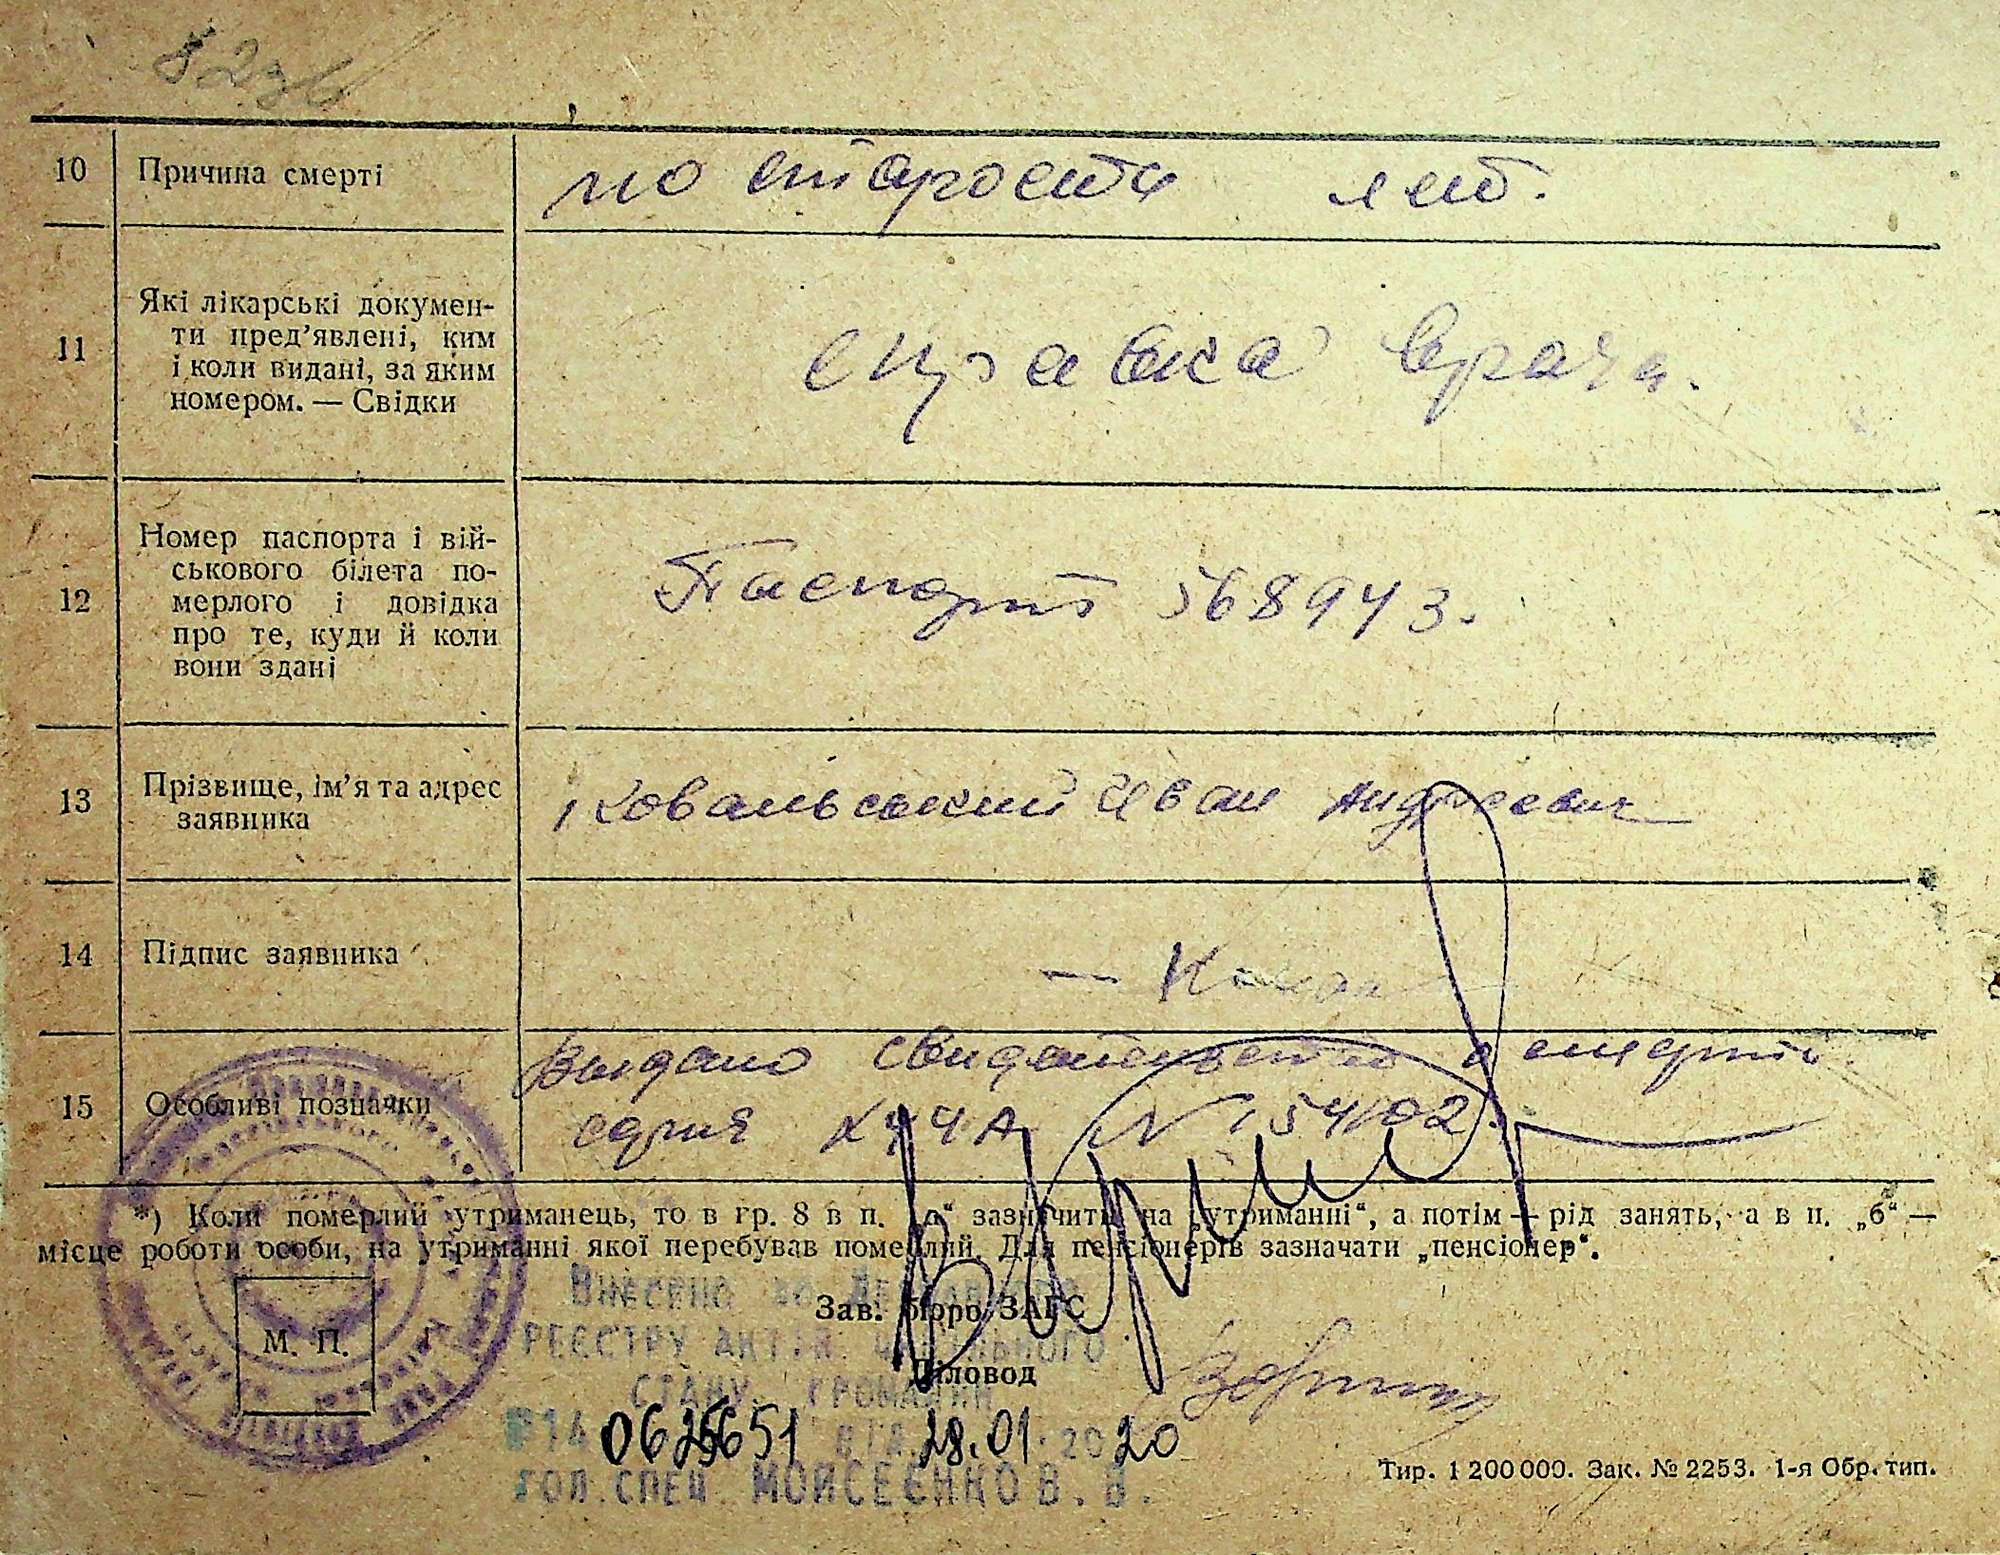 10 Причина смерті по старости лет.
11 Які лікарські докумен-
ти пред’явлені, ким
і коли видані, за яким
номером. — Свідки
справка врача.
12 Номер паспорта і вій-
ськового білета по-
мерлого і довідка
про те, куди й коли
вони здані
Паспорт 568943.
13 Прізвище, ім’я та адрес
заявника
Ковальський Иван Андреевич
14 Підпис заявника
15 Особливі позначки
Выдано свидетельство о смерти.
серия N 154102.
*) Коли померлий утриманець, то в гр. 8 в п. „а“ зазначити „на утриманні“, а потім — рід занять, а в п. „б“ —
місце роботи особи, на утриманні якої перебував померлий. Для пенсіонерів зазначати „пенсіонер“.
Внесено до Державного
Зав. бюро ЗАГС
М. П.
реєстру актів цивільного
Діловод
стану громадян
від 28.01.2020
гол. спец. Моисеєнко В. В.
Тир. 1 200 000. Зак. № 2253. 1-я Обр. тип.